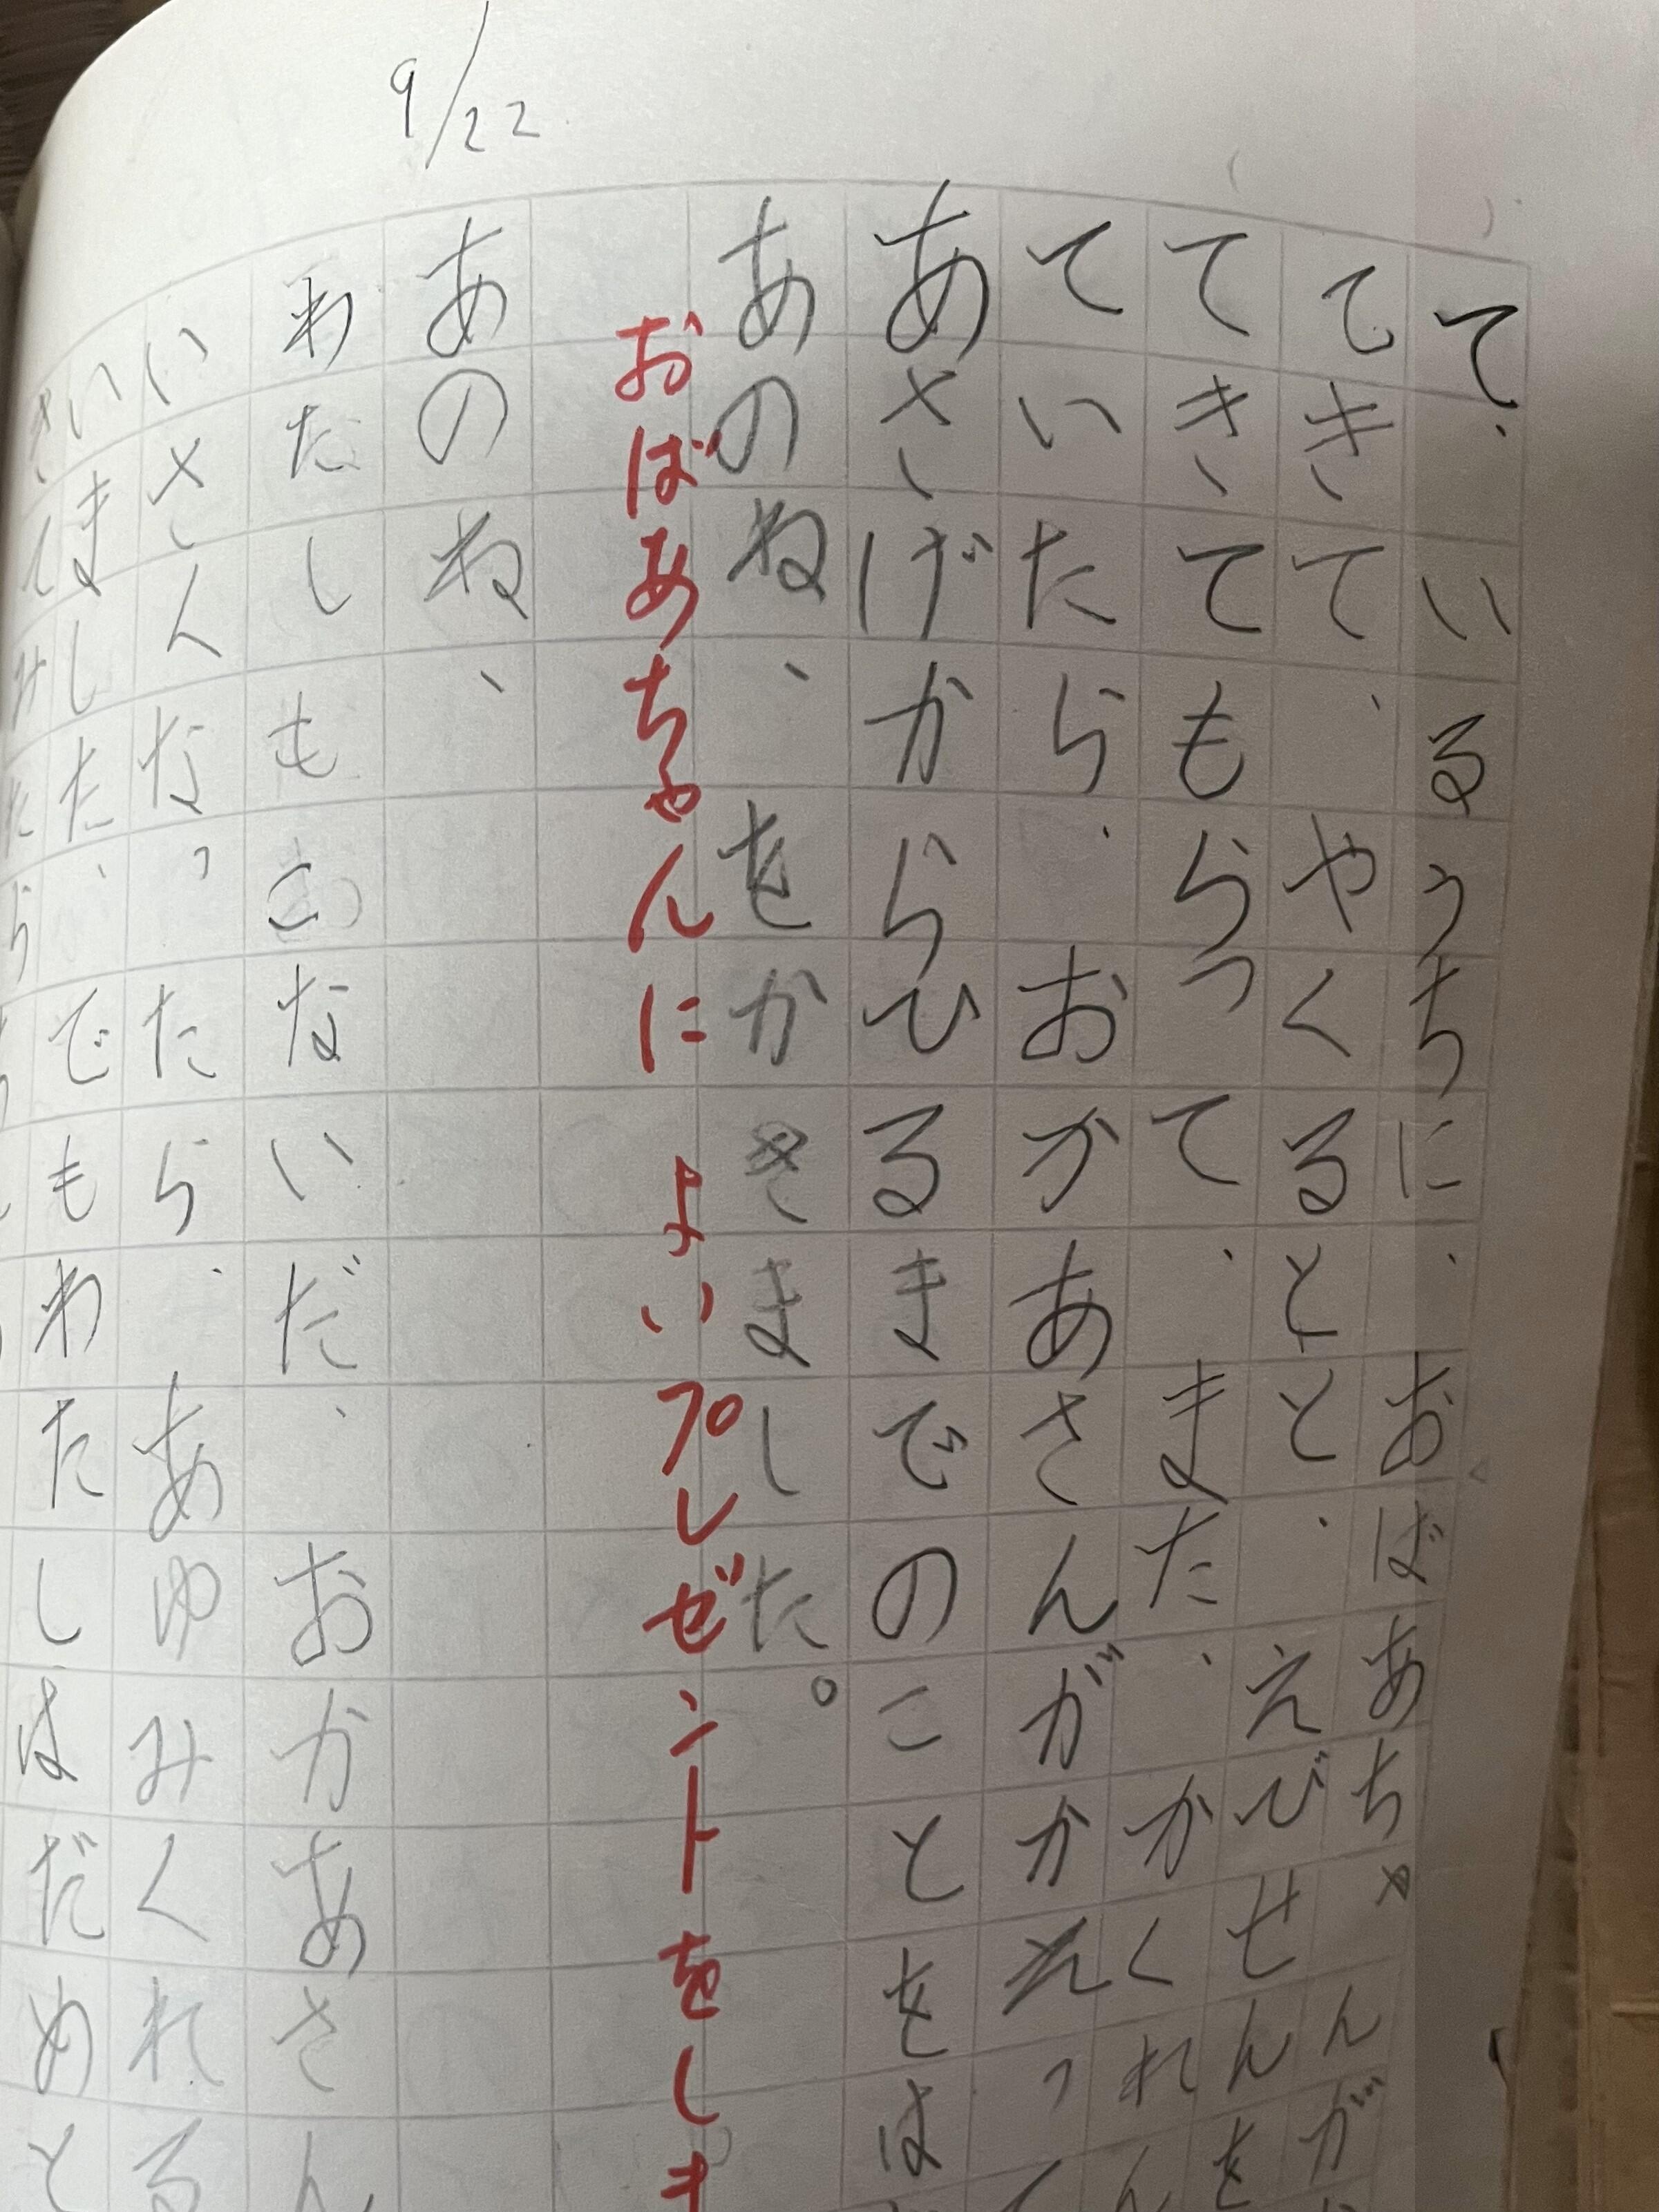 9/22
て、いるうちに、おばあちゃんが
できて、やくると、と、えびせんを
てきてもらって、また、かくれん
ていたら、おかあさんがかえって
あさげからひるまでのことをは
あのね、をかきました。
おばあちゃんに よいプレゼントをしま
あのね、
わたしもこないだ、おかあさん
いさんなったら、あゆみくれる
いました、でもわたしはだめと